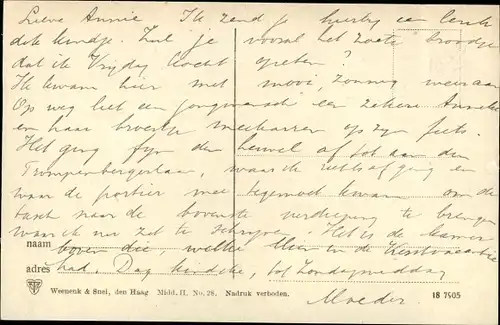 Lieve Annie Ik zend je hartig een
kindje. Zul je vooral het zoete broodje
dat ik Vrijdag kocht opeten?
Ik kwam hier met mooi, zonnig weer aan
Op weg liet een jongmensch een zekere Anneke
en haar broertje meekarren op zijn fiets.
Het ging fijn den heuvel af tot aan den
Trompenbergerlaan, waar ik rechts af ging en
waar de portier me tegemoet kwam om de
tasch naar de bovenste verdieping te brengen
waar ik nu zit te schrijven. Het is de kamer
naam boven die, welke in de Kerstvacantie
adres had. Dag kindeke, tot Zondagmiddag
Moeder.
Weenenk & Snel, den Haag Midd. II. No. 28. Nadruk verboden. 18 7505